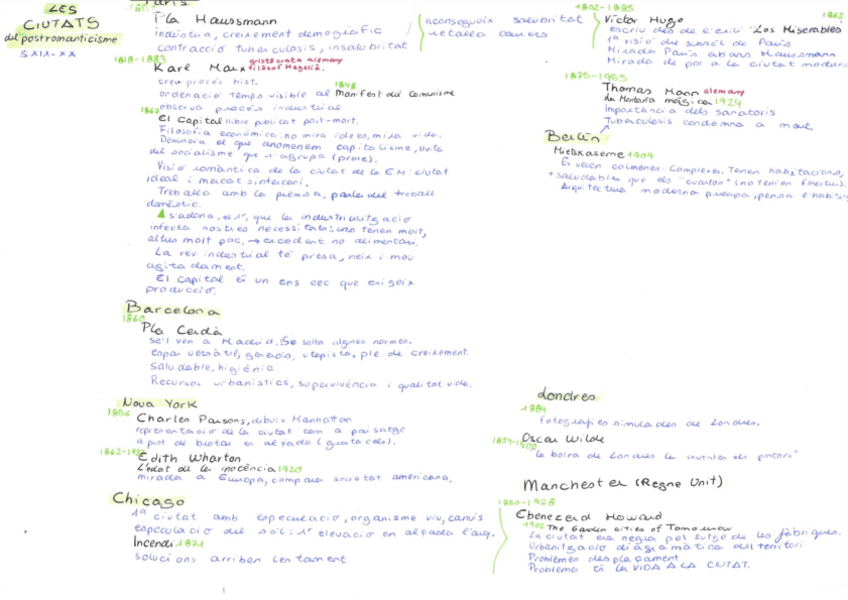 LES
CIUTATS
del postromanticisme
S.XIX-XX
París
Pla Haussmann
indústria, creixement demogràfic
contracció tuberculosis, insalubritat
aconsegueix salubritat
retalla carrers
1818-1883
Karl Marx aristòcrata alemany
filòsof Hegelià.
creu procés hist.
1848
ordenació temps visible al Manifest del Comunisme
observa procés industrial
1867
El Capital llibre publicat post-mort.
Filosofia econòmica: no mira idees, mira vida.
Denuncia el que anomenem capitalisme, lluita
del socialisme que s'agrupa (prole).
Visió romàntica de la ciutat de la EM: ciutat
ideal i mercat sintercani.
Treballa amb la premsa, parla del treball
domèstic.
s'adona, el 1r, que la industrialització
infecta nostres necessitats: uns tenen molt,
altres molt poc. → excedent no alimentari.
La rev. industrial té presa, neix i mou
agitadament.
El capital és un ens cec que exigeix
producció.
Barcelona
1860
Pla Cerdà
se'l ven a Madrid. Se salta algnes normes.
espai versàtil, generós, utopista, ple de creixement.
Saludable, higiènic
Recursos urbanístics, supervivència i qualitat vida.
Nova York
1856
Charles Parsons, dibuix Manhattan
representació de la ciutat com a paisatge
a punt de brotar en alçada (gratacels).
Edith Wharton
L'edat de la inocència 1920
mirada a Europa, compara societat americana.
Chicago
1ª ciutat amb especulació, organisme viu, canvis
especulació del sòl: 1ª elevació en alçada l'arq.
Incendi 1871
solucions arriben lentament
1802-1885
Víctor Hugo 1862
escriu des de l'exili "Los Miserables"
1ª visió del subsòl de París
Mirada París abans Haussmann
Mirada de por a la ciutat moderna
1875-1955
Thomas Mann alemany
La Montaña mágica 1924
Importància dels sanatoris
Tuberculosis condemna a mort.
Berlín
Mietskaserne 1909
Es veien colmenes. Complexes. Tenen habitacions,
+ saludables que els "cuartos" (no tenien finestres).
Arquitectura moderna
Londres
1884
fotografies simulades de Londres.
Oscar Wilde
"la boira de Londres la els pintors"
Manchester (Regne Unit)
1850-1928
Ebenezerd Howard
1902 The Garden cities of Tomorrow
La ciutat era negra pel sutge de les fàbriques.
Urbanització diagramàtica del territori
Problemes desplaçament
Problema és la VIDA A LA CIUTAT.